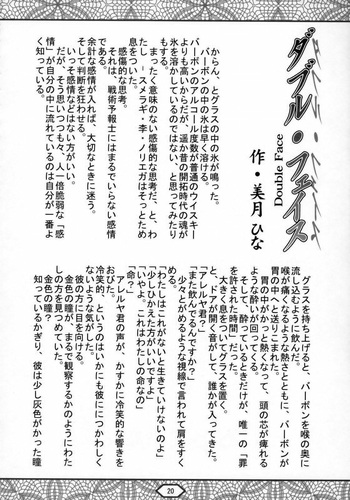 ダブル・フェイス
Double Face
作・美月ひな
からん、とグラスの中の氷が鳴った。
バーボンの中の氷は早く溶ける。
バーボンのアルコール度数が普通のウイスキー
よりも高いからだが、遥か昔の開拓時代の魂が
氷を溶かしているのではない、と思ってみたり
する。
まったく意味のない感傷的な思考だ、と、わ
たし―スメラギ・李・ノリエガはそっとため
息をついた。
感傷的な思考。
それは、戦術予報士にはまるでいらない感情
だ。
余計な感情が入れば、大切なときに迷う。
そして判断を狂わせる。
いっそ感情などはない方がいい。
だが、そう思いつつも、人一倍脆弱な「感
情」が自分の中に流れているのは自分が一番よ
く知っている。
グラスを持ち上げると、バーボンを喉の奥に
流し込むように飲んだ。
喉が痛くなるような熱さとともに、バーボンが
胃の中へと送りこまれた。
胃の中がかっと熱くなって、頭の芯が痺れる
ような酔いが回ってくる。
そして、酔っているときだけが、唯一の「罪
を許された時間」だった。
大きく息をついてグラスを置く。
と、ドアが開く音がして、誰かが入ってきた。
「また飲んでるんですか？」
「アレルヤ君？」
少々とがめるような視線で言われて肩をすく
める。
「わたしはこれがないと生きていけないのよ」
「少しひかえた方がいいですよ」
「いやよ。これはわたしの命なの」
「命？」
アレルヤ君の声が、かすかに冷笑的な響きを
おびた。
冷笑的、というのはいかにも彼ににつかわしく
ないような気がした。
彼の方に目を向ける。
金色の瞳が、まるで観察するかのようにわた
しの方を見つめていた。
金色の瞳？
知っているかぎり、彼は少し灰色がかった瞳
20